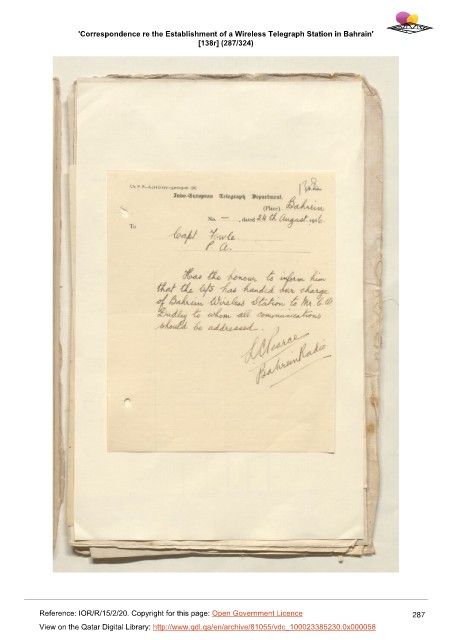 'Correspondence re the Establishment of a Wireless Telegraph Station in Bahrain'
[138r] (287/324)
Indo-European Telegraph Department.
(Place) Bahrein
No. — , dated 24th August 1916
To
Capt. Fowle.
P A.
Has the honour to inform him
that the u/s has handed over charge
of Bahrein Wireless Station to Mr C
Dudley to whom all communications
should be addressed.
Pearce
Bahrein Radio
Reference: IOR/R/15/2/20. Copyright for this page: Open Government Licence
287
View on the Qatar Digital Library: http://www.qdl.qa/en/archive/81055/vdc_100023385230.0x000058